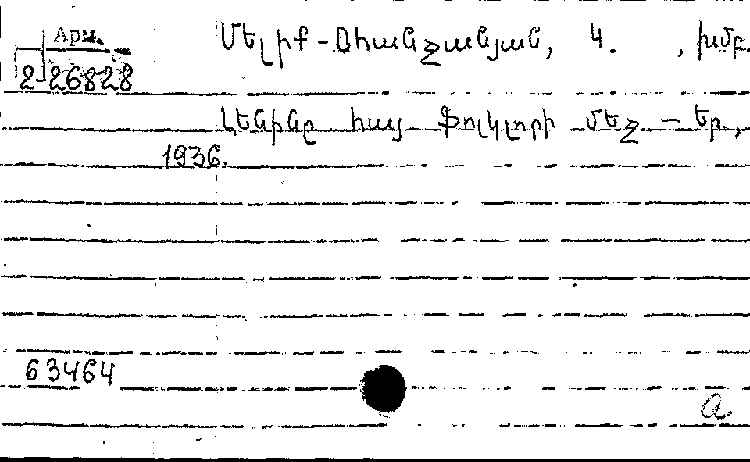 Арм.
2 26828
Մելիք-Օհանջանյան, Կ. , խմբ.
Լենինը հայ Ֆոլկլորի մեջ – Եր.,
1936.
63464
a